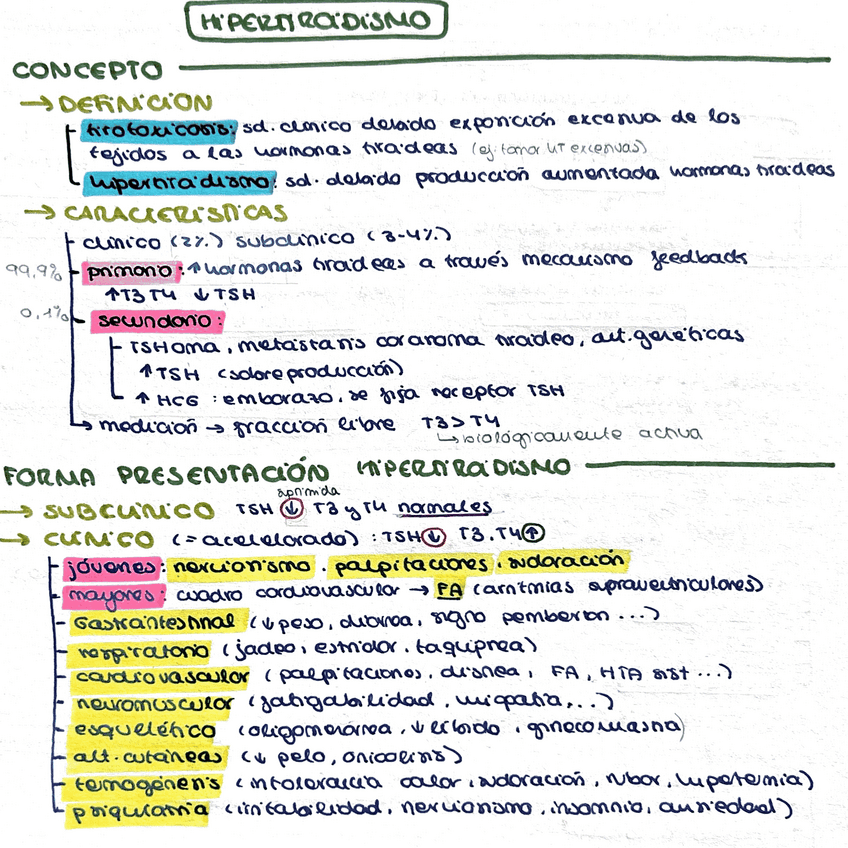 HIPERTIROIDISMO
CONCEPTO
→ DEFINICIÓN
tirotoxicosis: sd. clínico debido exposición excesiva de los
tejidos a las hormonas tiroideas (ej. tomar HT excesivas)
hipertiroidismo: sd. debido producción aumentada hormonas tiroideas
→ CARACTERÍSTICAS
clínico (2%) subclínico (3-4%)
99,9% primario: ↑ hormonas tiroideas a través mecanismo feedback
↑T3 T4 ↓ TSH
0,1% secundario:
TSHoma, metástasis coranoma tiroideo, alt. genéticas
↑ TSH (sobreproducción)
↑ HCG: embarazo, se fija receptor TSH
→ medición → fracción libre T3 > T4
↳ biológicamente activa
FORMA PRESENTACIÓN HIPERTIROIDISMO
suprimida
→ SUBCLÍNICO TSH ↓ T3 y T4 normales
→ CLÍNICO (= acelelorado): TSH ↓ T3, T4 ↑
jóvenes: nerviosismo, palpitaciones, sudoración
mayores: cuadro cardiovascular → FA (arritmias supraventriculares)
Gastrointestinal (↓ peso, diarrea, signo pemberton ...)
respiratorio (jadeo, estridor, taquipnea)
cardiovascular (palpitaciones, disnea, FA, HTA sist ...)
neuromuscular (fatigabilidad, miopatía, ...)
esquelético (oligomenorrea, ↓ líbido, ginecomastia)
alt. cutáneas (↓ pelo, onicolisis)
termogénesis (intolerancia calor, sudoración, rubor, hipertermia)
psiquiatría (irritabilidad, nerviosismo, insomnio, ansiedad)